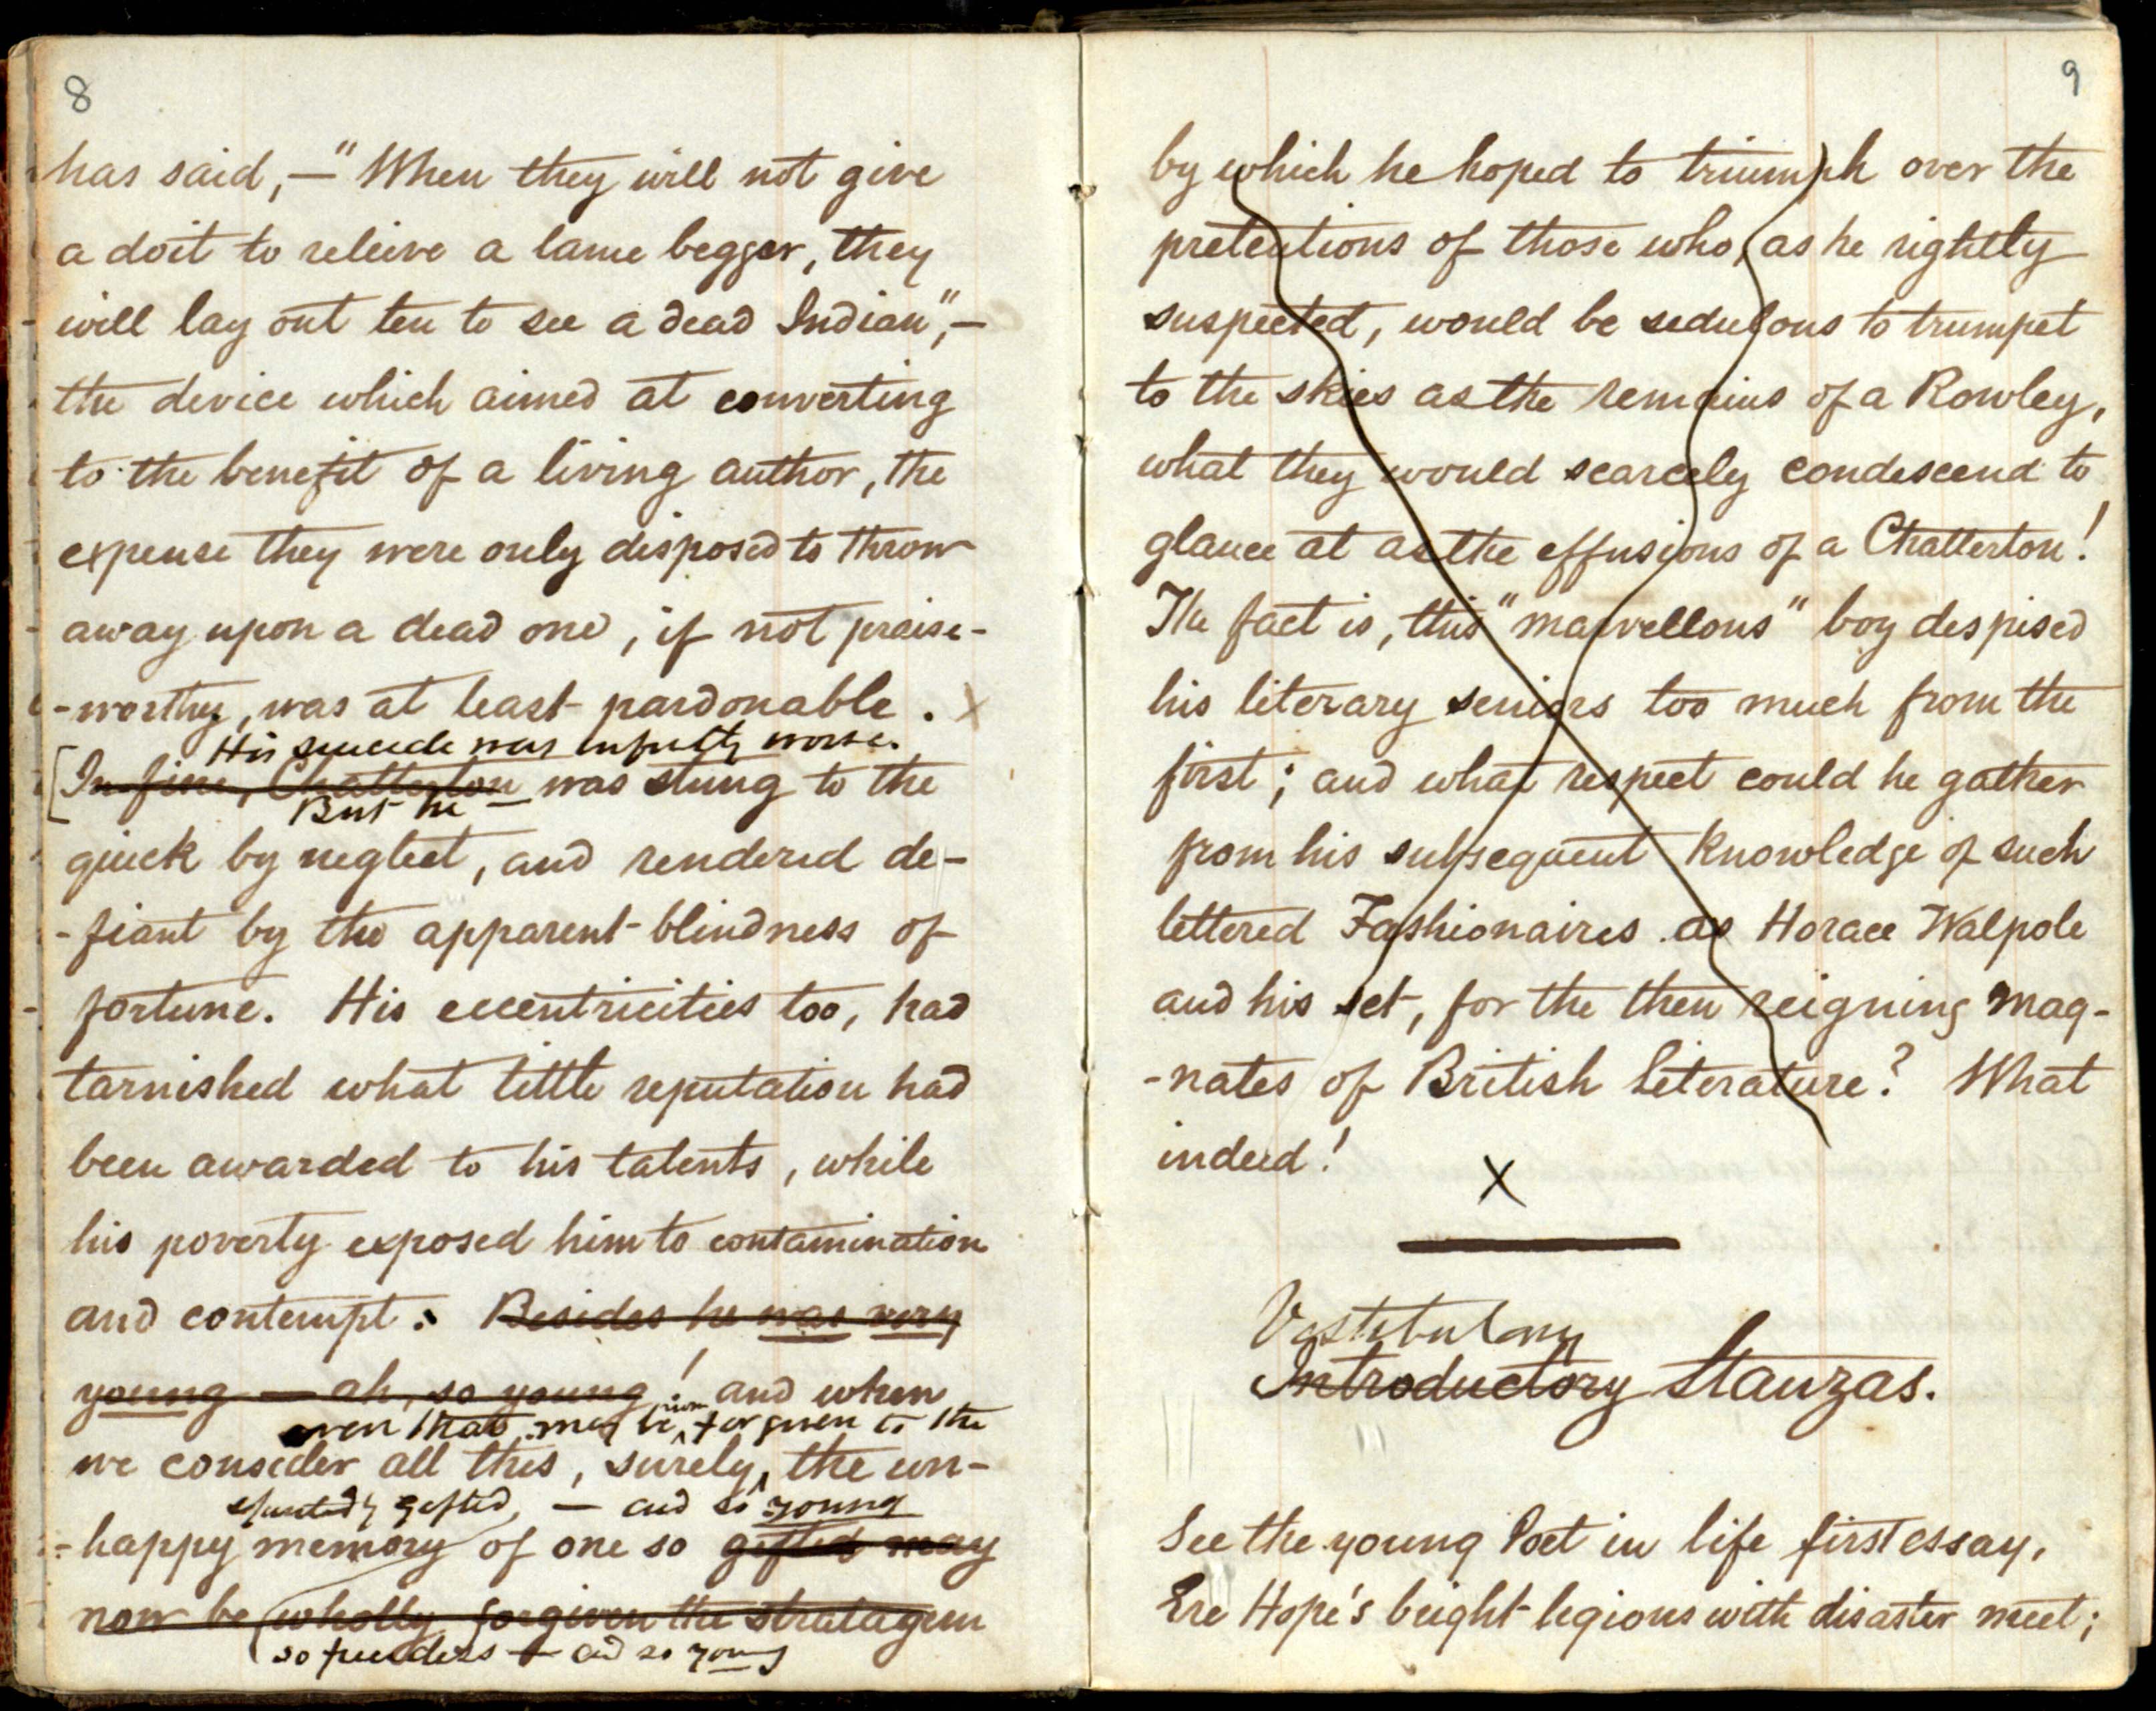 8
has said,—"When they will not give
a doit to releive a lame begger, they
will lay out ten to see a dead Indian",—
the device which aimed at converting
to the benefit of a living author, the
expense they were only disposed to throw
away upon a dead one, if not praise-
-worthy, was at least pardonable. X
His suicide was infinitely worse.
[In fine, Chatterton was stung to the
But he —
quick by neglect, and rendered de-
-fiant by the apparent blindness of
fortune. His eccentricities too, had
tarnished what little reputation had
been awarded to his talents, while
his poverty exposed him to contamination
and contempt. Besides he was very
young — ah, so young! and when
even that may be now forgiven to the
we consider all this, surely, the un-
gifted, — and so young
-happy memory of one so gifted may
now be (wholly forgiven the stratagem
so friendless — and so young
9
by which he hoped to triumph over the
pretentions of those who, as he rightly
suspected, would be sedulous to trumpet
to the skies as the remains of a Rowley,
what they would scarcely condescend to
glance at as the effusions of a Chatterton!
The fact is, this "marvellous" boy despised
his literary seniors too much from the
first; and what respect could he gather
from his subsequent knowledge of such
lettered Fashionaires as Horace Walpole
and his set, for the then reigning mag-
-nates of British literature? What
indeed!
X
Vestibulary
Introductory Stanzas.
See the young Poet in life first essay,
Ere Hope's bright legions with disaster meet;